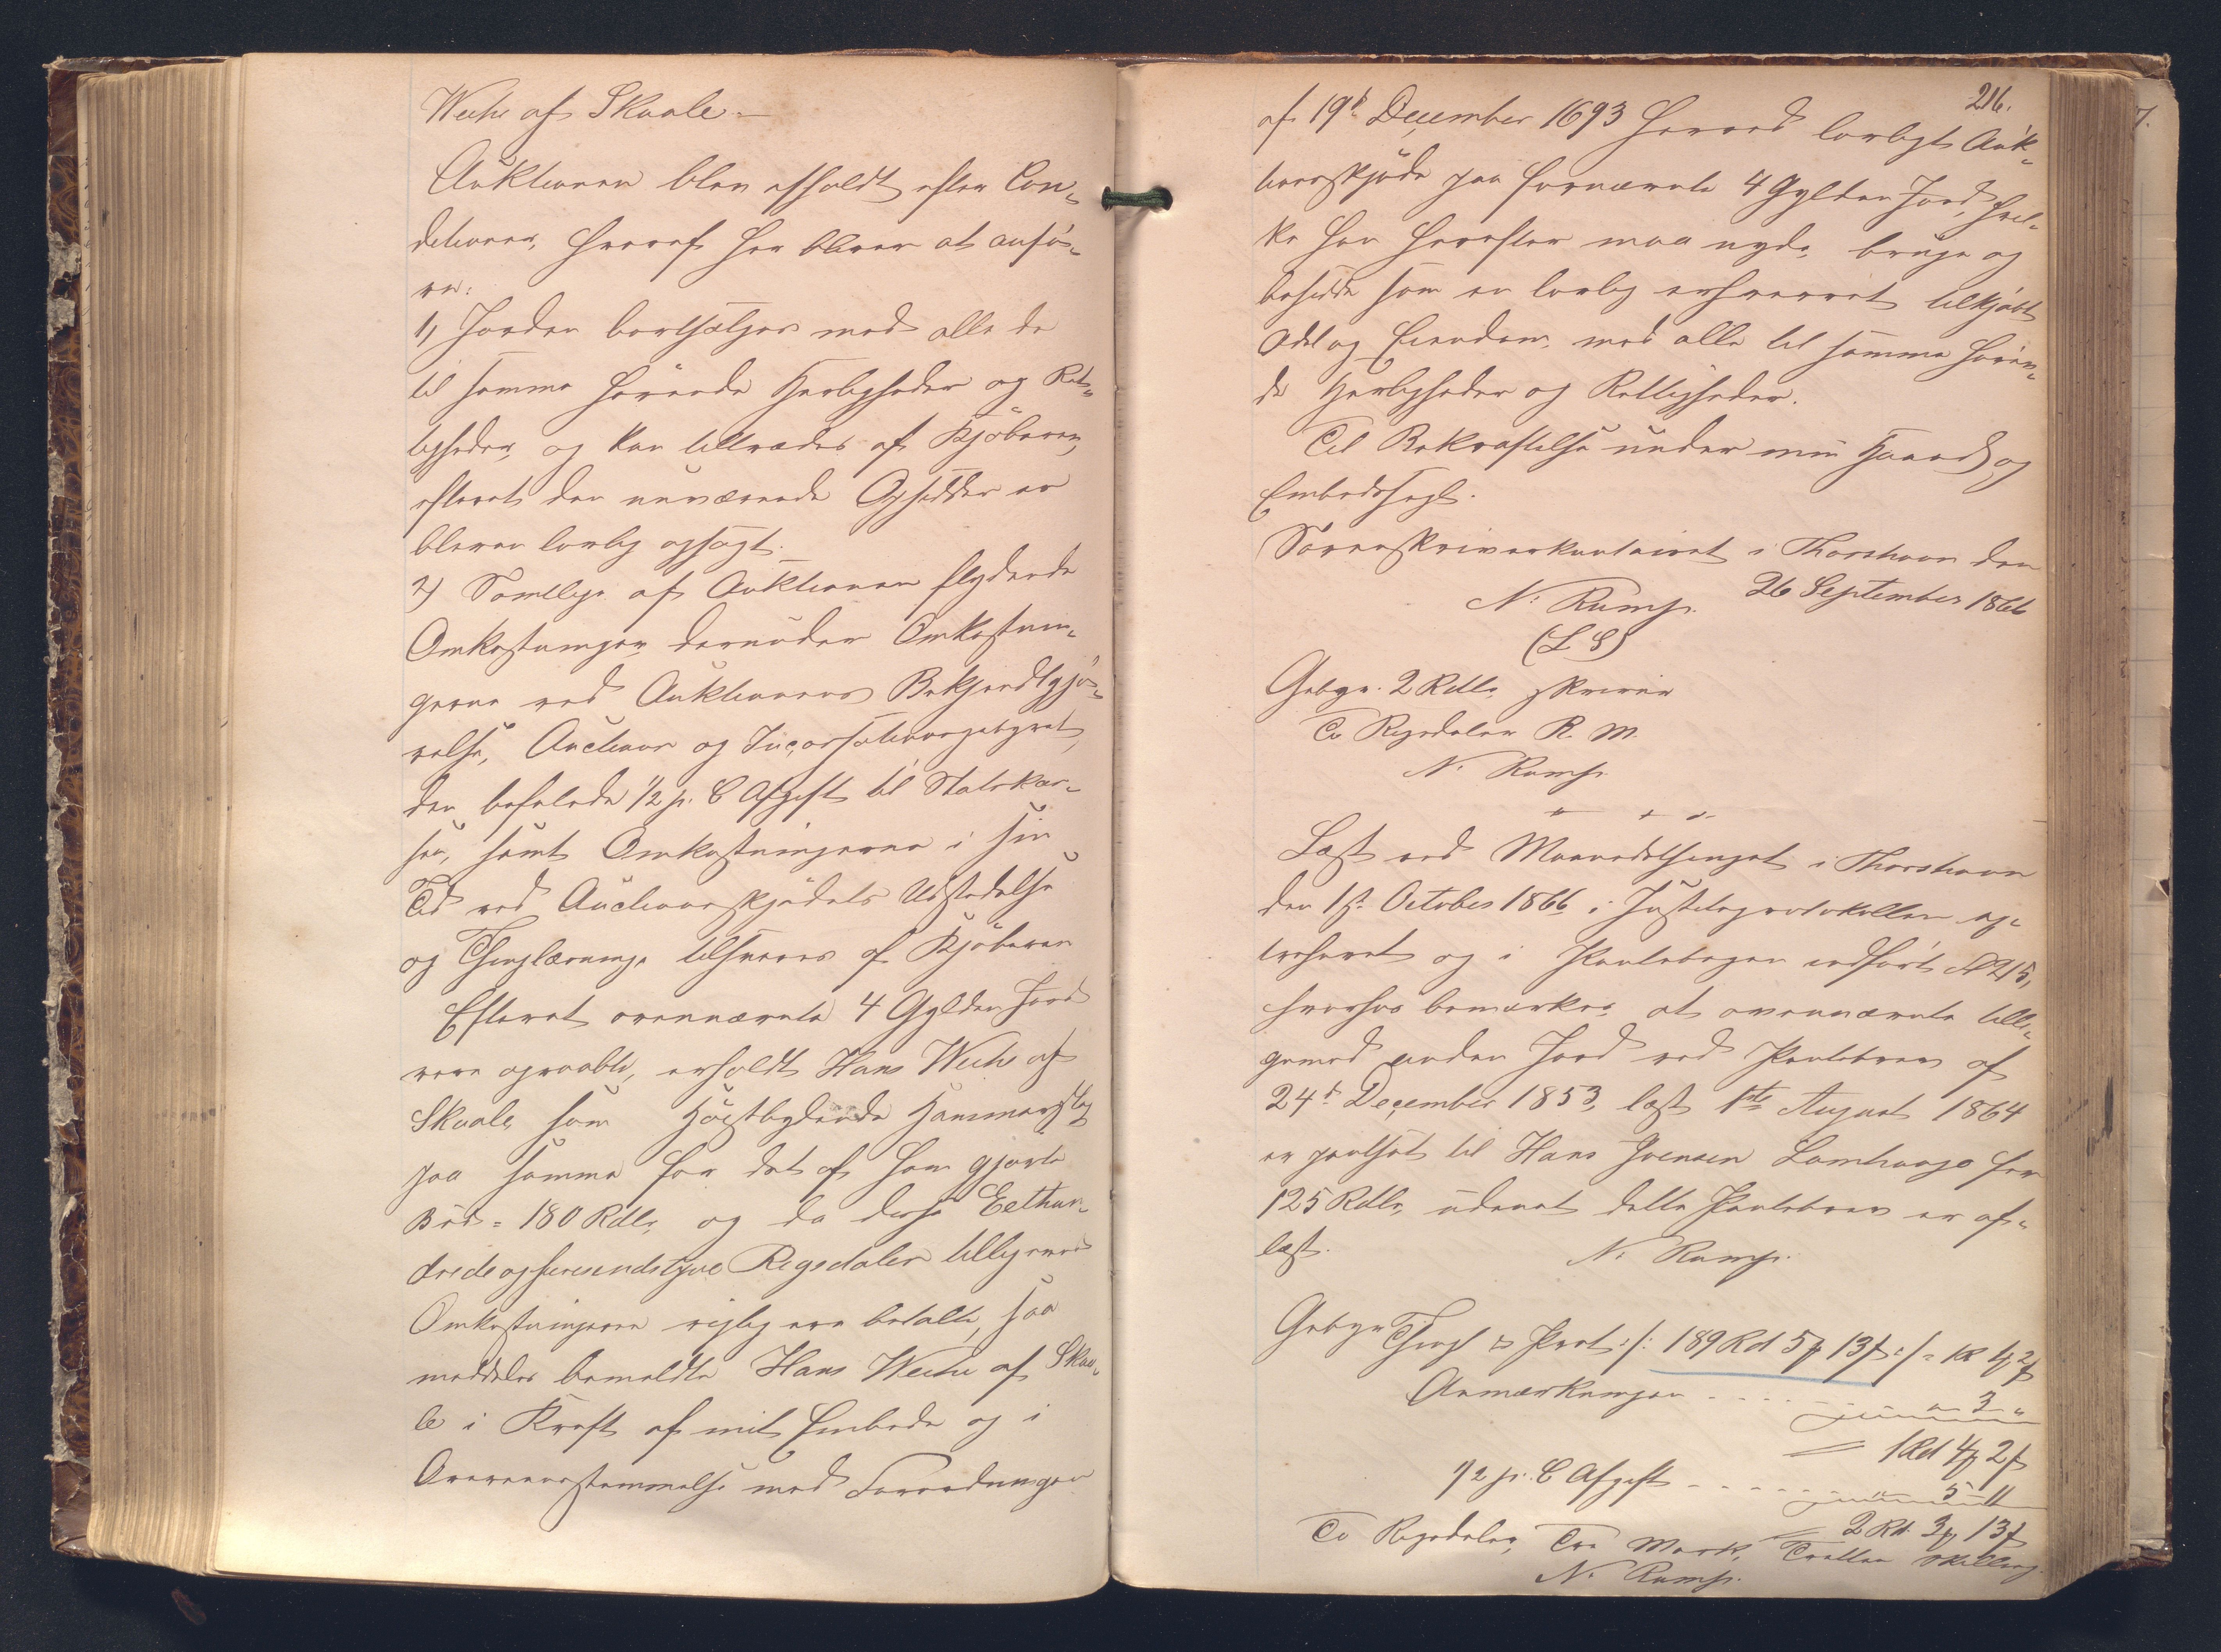 Weihe af Skaale.—
Auktionen blev afholdt efter Con¬
ditioner, hvoraf her bliver at anfø¬
re:
1) Jorden bortsælges med alle de
til samme hørende Herligheder og Ret¬
tigheder, og kan tiltrædes af Kjøberen,
efterat den nuværende Opsidder er
bleven lovlig opsagt.
2) Samtlige af Auktionen flydende
Omkostninger, derunder Omkostnin¬
gerne ved Auktionens Bekjendtgjø¬
relse, Auctions og Incassationsgebyret,
den befalede 1/2 p. C Afgift til Statskas¬
sen, samt Omkostningerne i sin
Tid ved Auctionsskjødets Udstedelse
og Thinglæsning tilsvares af Kjøberen
Efterat ovennævnte 4 Gylden Jord
vare opraabte, erholdt Hans Weihe af
Skaale som Høistbydende Hammerslag
paa samme for det af ham gjorte
Bud = 180 Rdlr, og da disse Eethun¬
drede og firesindstyve Rigsdaler tilligemed
Omkostningerne rigtig ere betalte, saa
meddeles bemeldte Hans Weihe af Skaa¬
le i Kraft af mit Embede og i
Overeensstemmelse med Forordningen
216.
af 19de December 1693 herved lovligt Auk¬
tionsskjøde paa fornævnte 4 Gylden Jord, hvil¬
ke han herefter maa nyde, bruge og
besidde som en lovlig erhvervet tilkjøbt
Odel og Eiendom, med alle til samme høren¬
de Herligheder og Rettigheder.
Til Bekræftelse under min Haand og
Embedssegl.
Sorenskriverkontoiret i Thorshavn den
26 September 1866
N. Rump.
(L S)
Gebyr. 2 Rdlr, skriver
To Rigsdaler R. M.
N. Rump.
Læst ved Maanedsthinget i Thorshavn
den 1st October 1866, i Justitsprotokollen ex¬
traheret og i Pantebogen indført N 215,
hvorhos bemærkes, at ovennævnte tilli¬
gemed anden Jord ved Pantebrev af
24de December 1853, læst 1ste August 1864
er pantsat til Hans Joensen Lamhauge for
125 Rdlr, uden at dette Pantebrev er af¬
læst.
N. Rump.
Gebyr Thingl & Prot :/: 189 Rd 5 ₻ 13 ß :/: = 1 R 4 ₻ 2 ß
Anmærkningen . . . . . „ 3 „
1 Rd 4 ₻ 2 ß
1/2 p. C Afgift - - - - - „ 5 - 11
2 Rd. 3 ₻ 13 ß
To Rigsdaler, Tre Mark, Tretten Skilling
N. Rump.